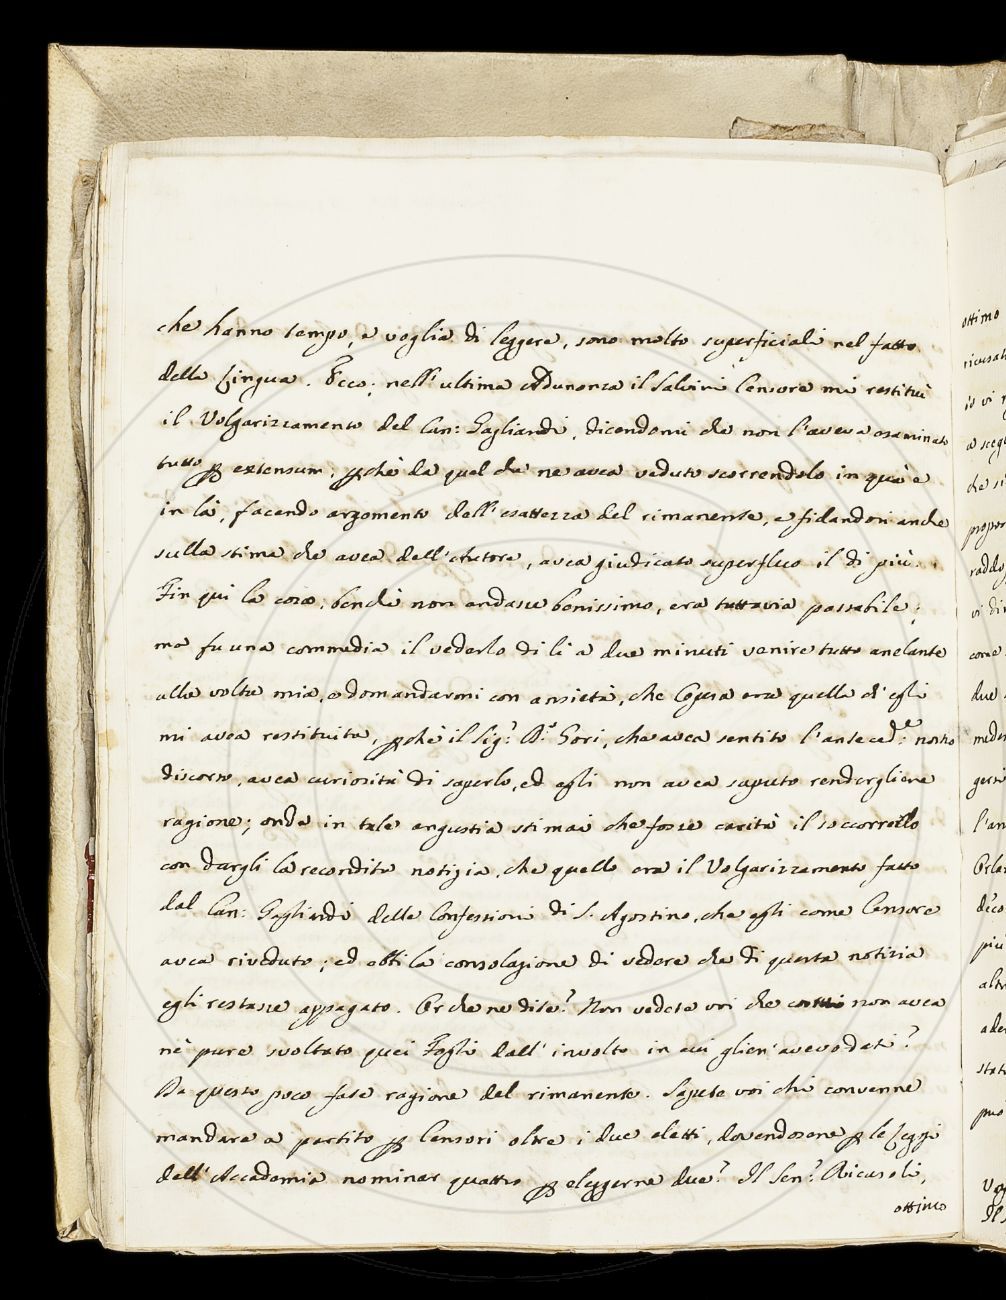 che hanno tempo, e voglia di leggere, sono molto superficiali nel fatto
della Lingua. Ecco; nell'ultima Adunanza il Salvini Censore mi restituì
il Volgarizzamento del Can: Gagliardi, dicendomi che non l'aveva esaminato
tutto ꝑ extensum, ꝑchè da quel che ne avea veduto scorrendolo in quà e
in là, facendo argomento dell'esattezza del rimanente, e fidandosi anche
sulla stima che avea dell'Autore, avea giudicato superfluo il di più.
Fin qui la cosa, benchè non andasse benissimo, era tuttavia passabile;
ma fu una commedia il vederlo di lì a due minuti venire tutto anelante
alla volta mia, e domandarmi con ansietà, che Opera era quella ch'egli
mi avea restituita, ꝑchè il Sig.r D.r Gori, che avea sentito l'anteced.e nostro
discorso, avea curiosità di saperlo, ed egli non avea saputo rendergliene
ragione; onde in tale angustia stimai che fosse carità il soccorrello
con dargli la recondita notizia, che quello era il Volgarizzamento fatto
dal Can: Gagliardi delle Confessioni di S. Agostino, che egli come Censore
avea riveduto; ed ebbi la consolazione di vedere che di questa notizia
egli restasse appagato. Or che ne dite? Non vedete voi che non avea
nè pure svoltato quei Fogli dall'involto in cui glien'avevo dati?
Da questo poco fate ragione del rimanente. Sapete voi chi convenne
mandare a partito ꝑ Censori oltre i due eletti, dovendosene ꝑ le Leggi
dell'Accademia nominar quattro ꝑ eleggerne due? Il Sen.r Ricasoli,
ottimo